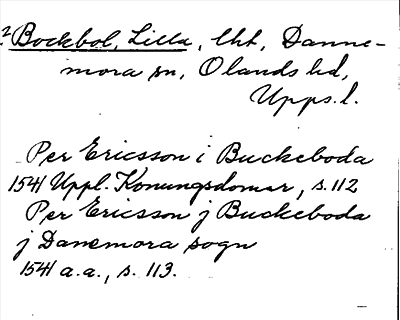 ? Bockbol, Lilla, lht, Danne-
mora sn, Olands hd,
Upps. l.
Per Ericsson i Buckeboda
1541 Uppl. Konungsdomar, s. 112
Per Ericsson j Buckeboda
j Danemora sogn
1541 a.a., s. 113.